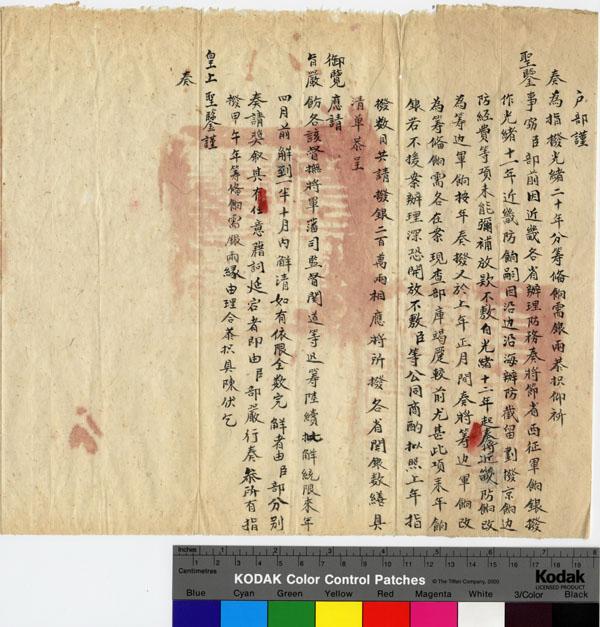 戶部謹
奏為指撥光緒二十年分籌備餉需銀兩恭摺仰祈
聖鑒事竊臣部前因近畿各省辦理防務奏將節省西征軍餉銀撥
作光緒十一年近畿防餉嗣因沿邊沿海辦防截留劃撥京餉邊
防經費等項未能彌補放款不敷自光緒十二年起奏將近畿防餉改
為籌邊軍餉按年奏撥又於上年正月間奏將籌邊軍餉改
為籌備餉需各在案現查部庫竭蹷較前尤甚此項來年餉
銀若不援案辦理深恐開放不敷臣等公同商酌擬照上年指
撥數目共請撥銀二百萬兩相應將所撥各省關銀數繕具
清單恭呈
御覽應請
旨嚴飭各該督撫將軍藩司監督關道等迅籌陸續批解統限來年
四月前解到一半十月內解清如有依限全數完解者由臣部分別
奏請獎敘其有任意藉詞延宕者即由臣部嚴行奏參所有指
撥甲午年籌備餉需銀兩緣由理合恭摺具陳伏乞
皇上聖鑒謹
奏
Inches 1 2 3 4 5 6 7 8
Centimetres 1 2 3 4 5 6 7 8 9 10 11 12 13 14 15 16 17 18 19
KODAK Color Control Patches © The Tiffen Company, 2000 Kodak
LICENSED PRODUCT
Blue Cyan Green Yellow Red Magenta White 3/Color Black